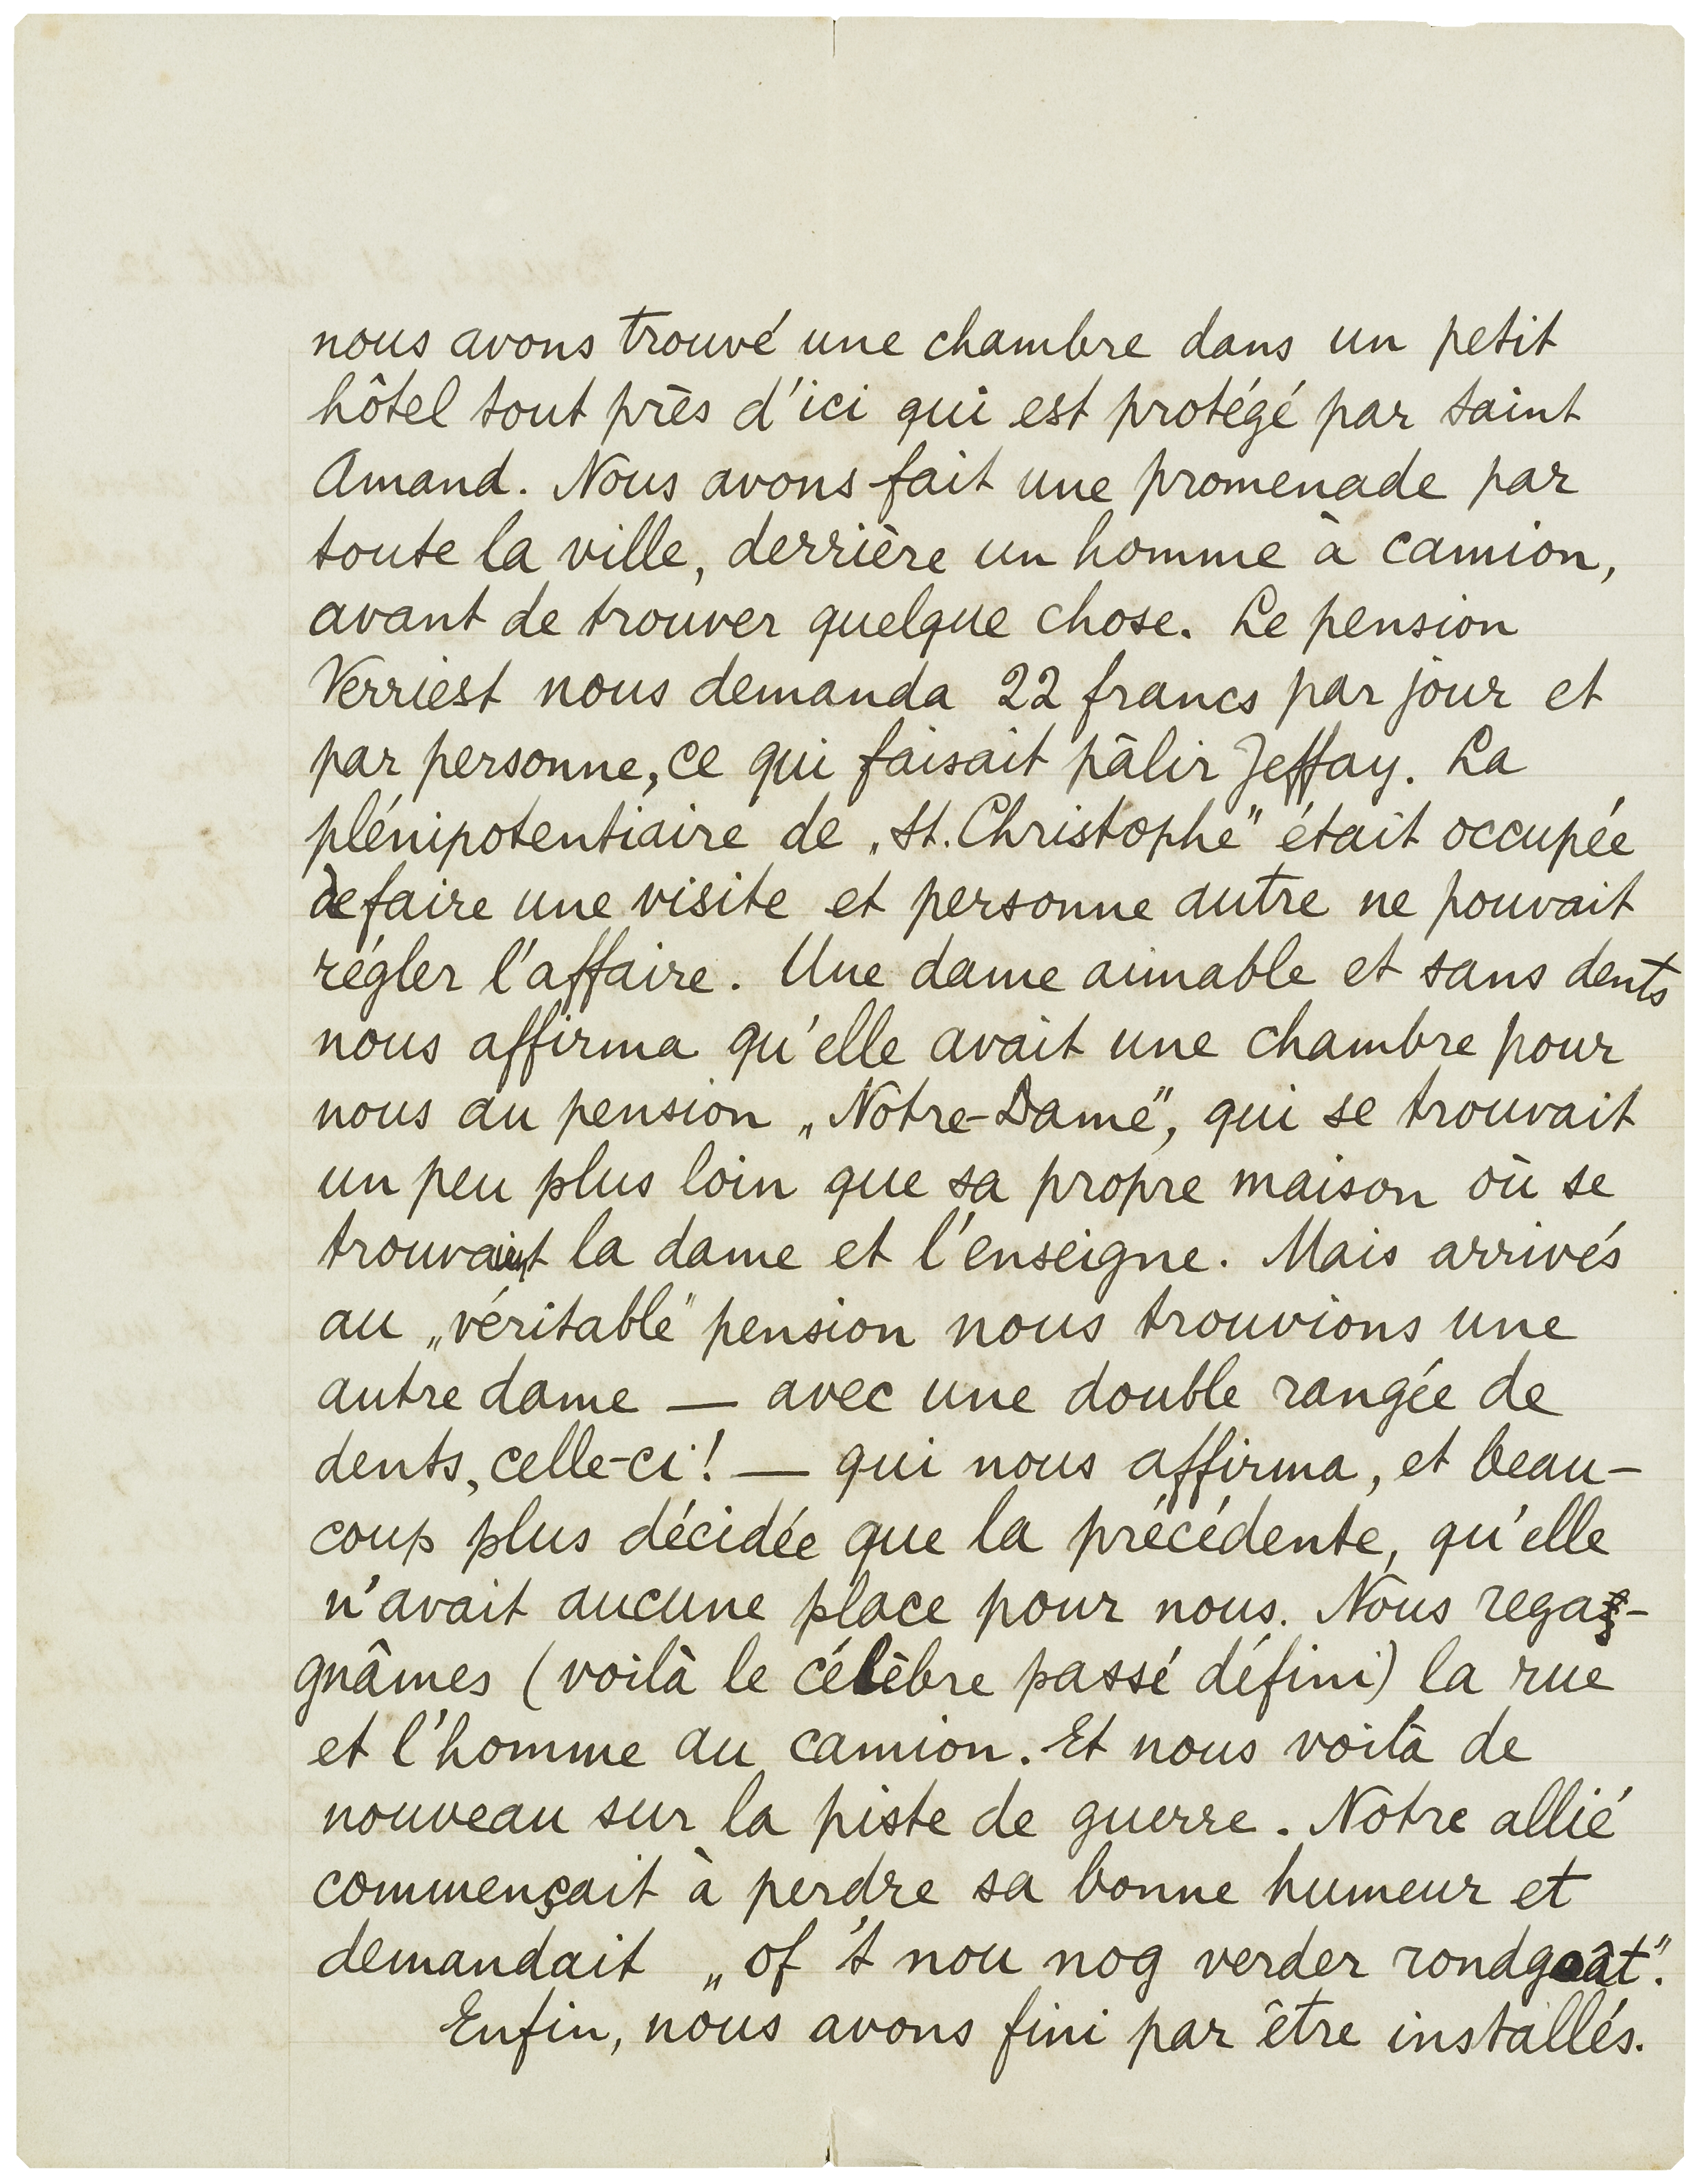 nous avons trouvé une chambre dans un petit
hôtel tout près d'ici qui est protégé par Saint
Amand. Nous avons fait une promenade par
toute la ville, derrière un homme à camion,
avant de trouver quelque chose. Le pension
Verriest nous demanda 22 francs par jour et
par personne, ce qui faisait pâlir Jeffay. La
plénipotentiaire de „St. Christophe" était occupée
de faire une visite et personne autre ne pouvait
régler l'affaire. Une dame aimable et sans dents
nous affirma qu'elle avait une chambre pour
nous au pension „Notre-Dame", qui se trouvait
un peu plus loin que sa propre maison où se
trouvait la dame et l'enseigne. Mais arrivés
au „véritable" pension nous trouvions une
autre dame — avec une double rangée de
dents, celle-ci! — qui nous affirma, et beau-
coup plus décidée que la précédente, qu'elle
n'avait aucune place pour nous. Nous rega-
gnâmes (voilà le célèbre passé défini) la rue
et l'homme au camion. Et nous voilà de
nouveau sur la piste de guerre. Notre allié
commençait à perdre sa bonne humeur et
demandait „of 't nou nog verder rondgoât".
Enfin, nous avons fini par être installés.